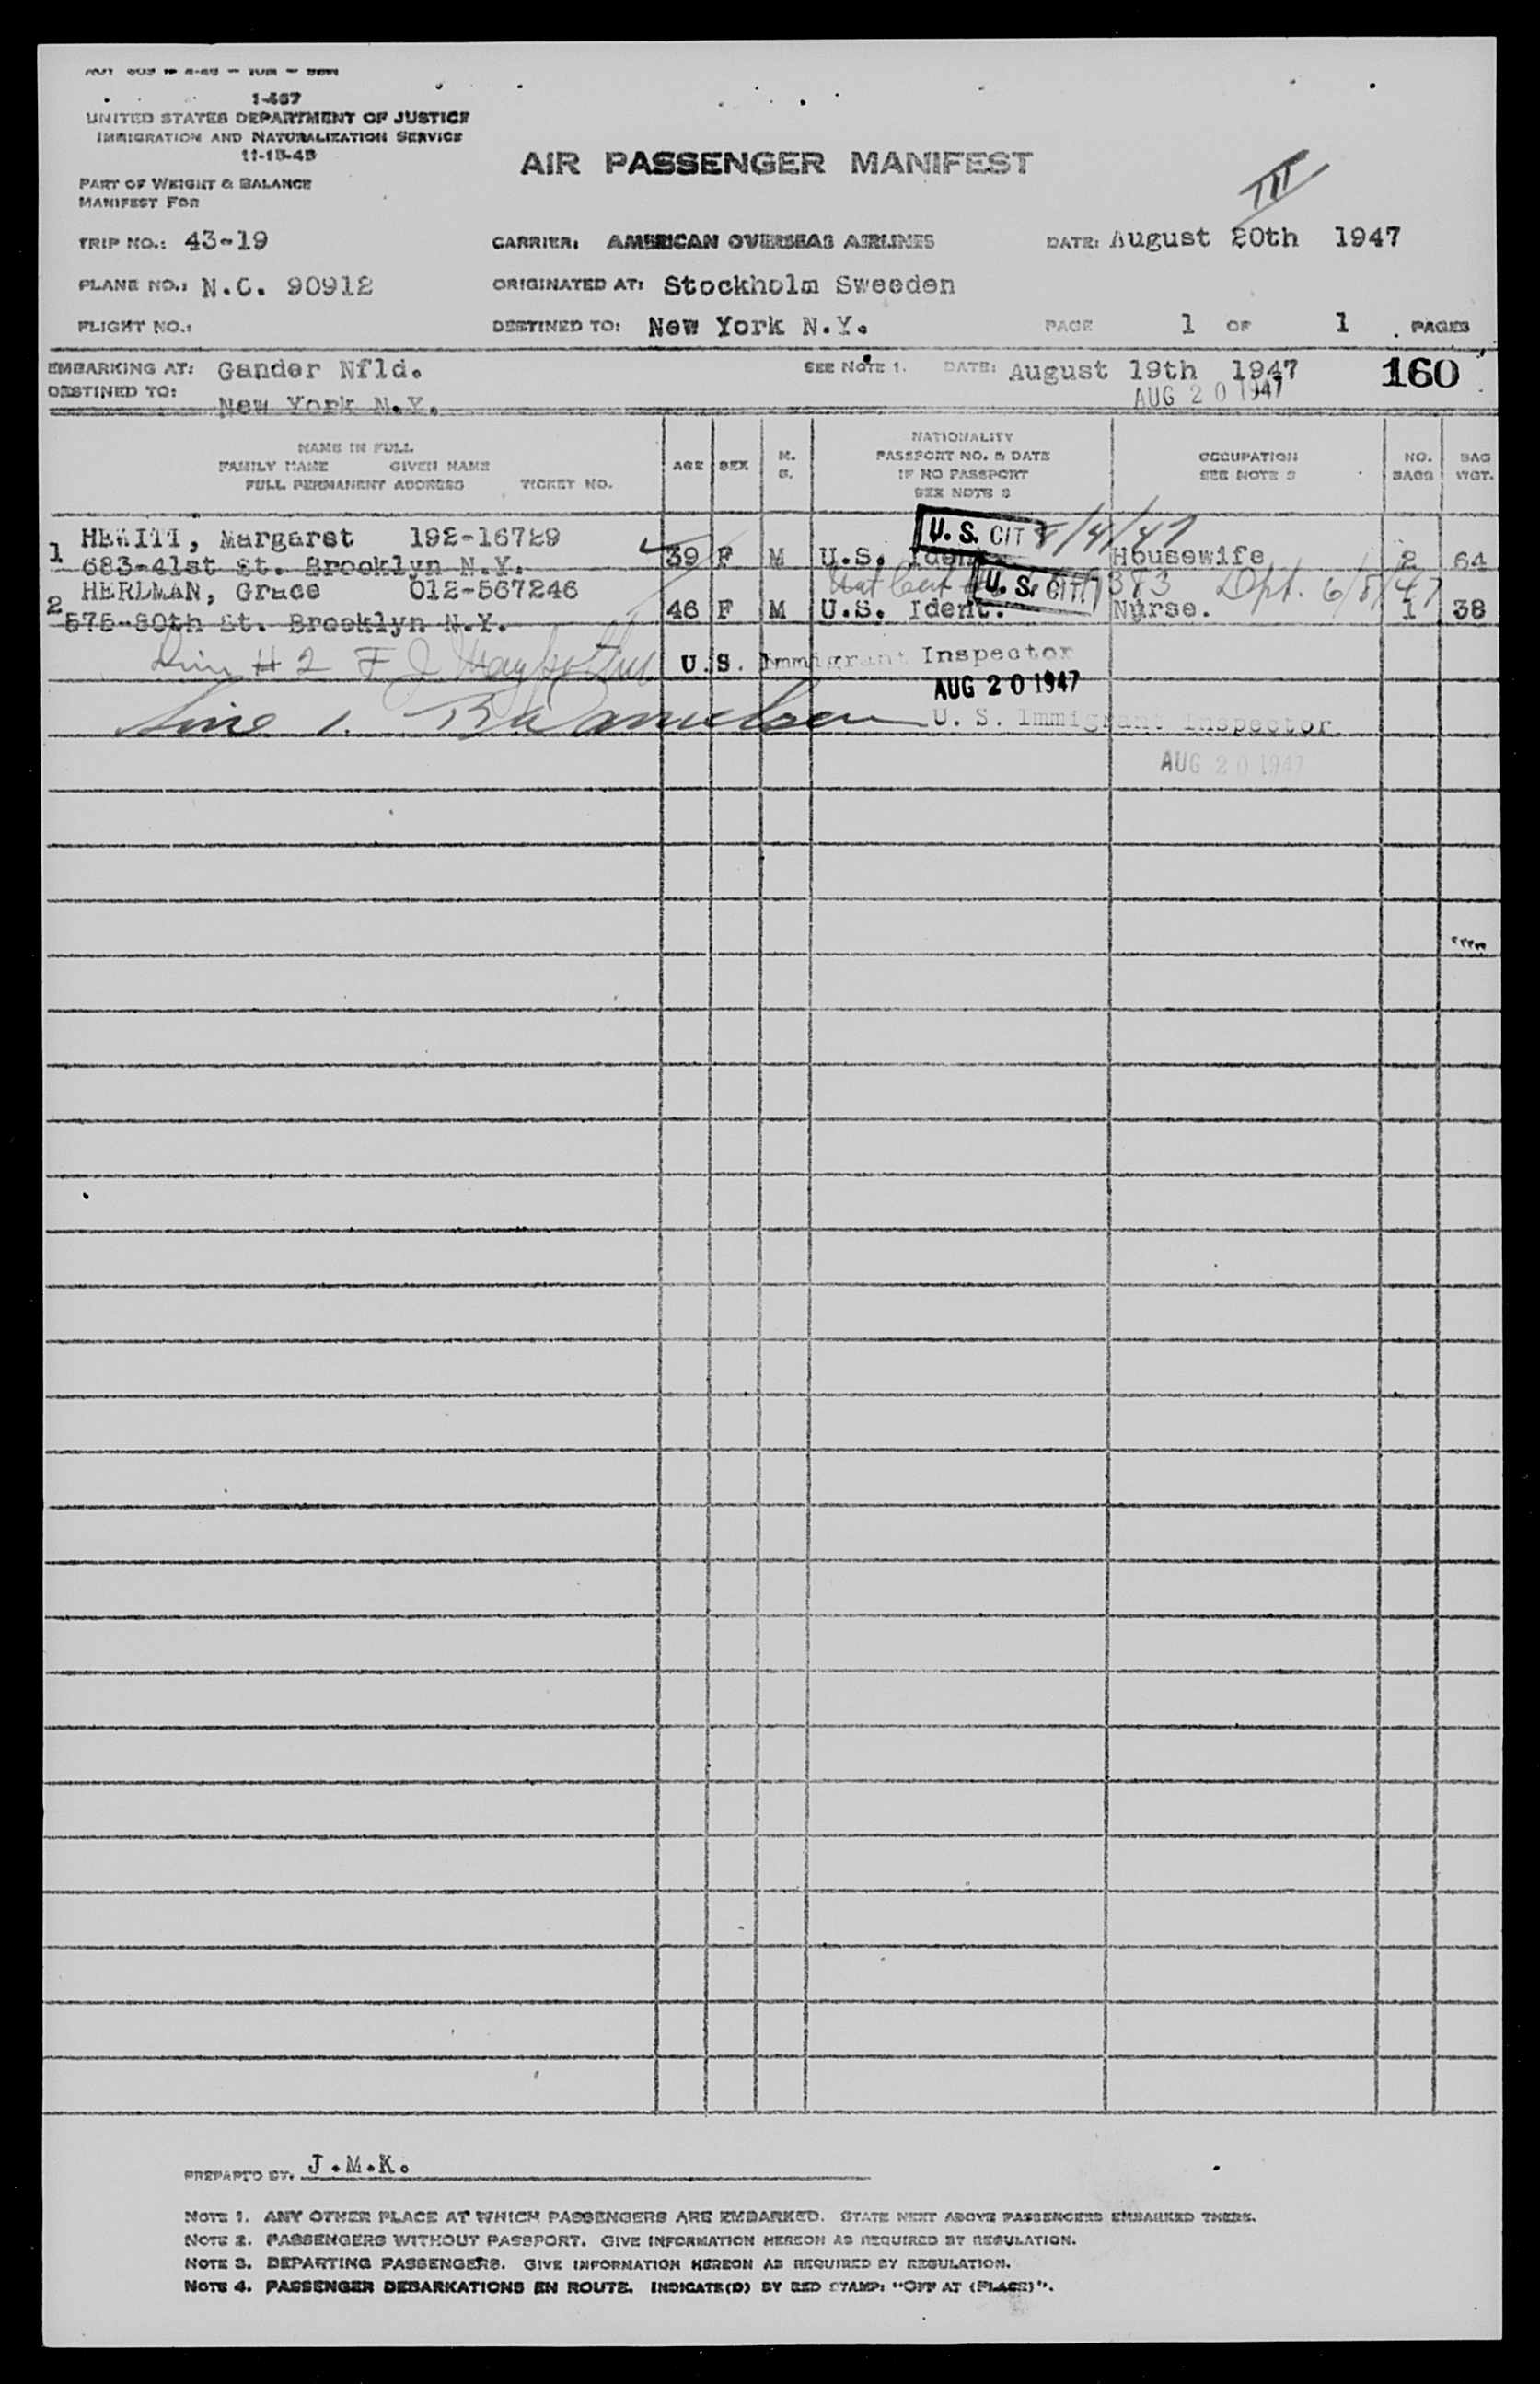 1-467
UNITED STATES DEPARTMENT OF JUSTICE
IMMIGRATION AND NATURALIZATION SERVICE
11-15-45
PART OF WEIGHT & BALANCE
MANIFEST FOR
AIR PASSENGER MANIFEST
III
TRIP NO.: 43-19 CARRIER: AMERICAN OVERSEAS AIRLINES DATE: August 20th 1947
PLANE NO.: N.C. 90912 ORIGINATED AT: Stockholm Sweeden
FLIGHT NO.: DESTINED TO: New York N.Y. PAGE 1 OF 1 PAGES
EMBARKING AT: Gander Nfld. SEE NOTE 1. DATE: August 19th 1947 160
DESTINED TO: New York N.Y. AUG 20 1947
NAME IN FULL
FAMILY NAME GIVEN NAME
FULL PERMANENT ADDRESS TICKET NO.
AGE SEX M. S.
NATIONALITY
PASSPORT NO. & DATE
IF NO PASSPORT
SEE NOTE 2
OCCUPATION
SEE NOTE 3
NO. BAGS
BAG WGT.
U. S. CIT 8/4/47
1 HEWITT, Margaret 192-16729 39 F M U.S. Ident. Housewife 2 64
683-41st St. Brooklyn N.Y.
Nat Cert U. S. CIT. 383 Dpt. 6/8/47
2 HERLMAN, Grace 012-567246 46 F M U.S. Ident. Nurse. 1 38
575-80th St. Brooklyn N.Y.
# 2 F J U.S. Immigrant Inspector
AUG 20 1947
Line 1. U. S. Immigrant Inspector
AUG 20 1947
PREPARED BY. J.M.K.
NOTE 1. ANY OTHER PLACE AT WHICH PASSENGERS ARE EMBARKED. STATE NEXT ABOVE PASSENGERS EMBARKED THERE.
NOTE 2. PASSENGERS WITHOUT PASSPORT. GIVE INFORMATION HEREON AS REQUIRED BY REGULATION.
NOTE 3. DEPARTING PASSENGERS. GIVE INFORMATION HEREON AS REQUIRED BY REGULATION.
NOTE 4. PASSENGER DEBARKATIONS EN ROUTE. INDICATE(D) BY RED STAMP: "OFF AT (PLACE)".